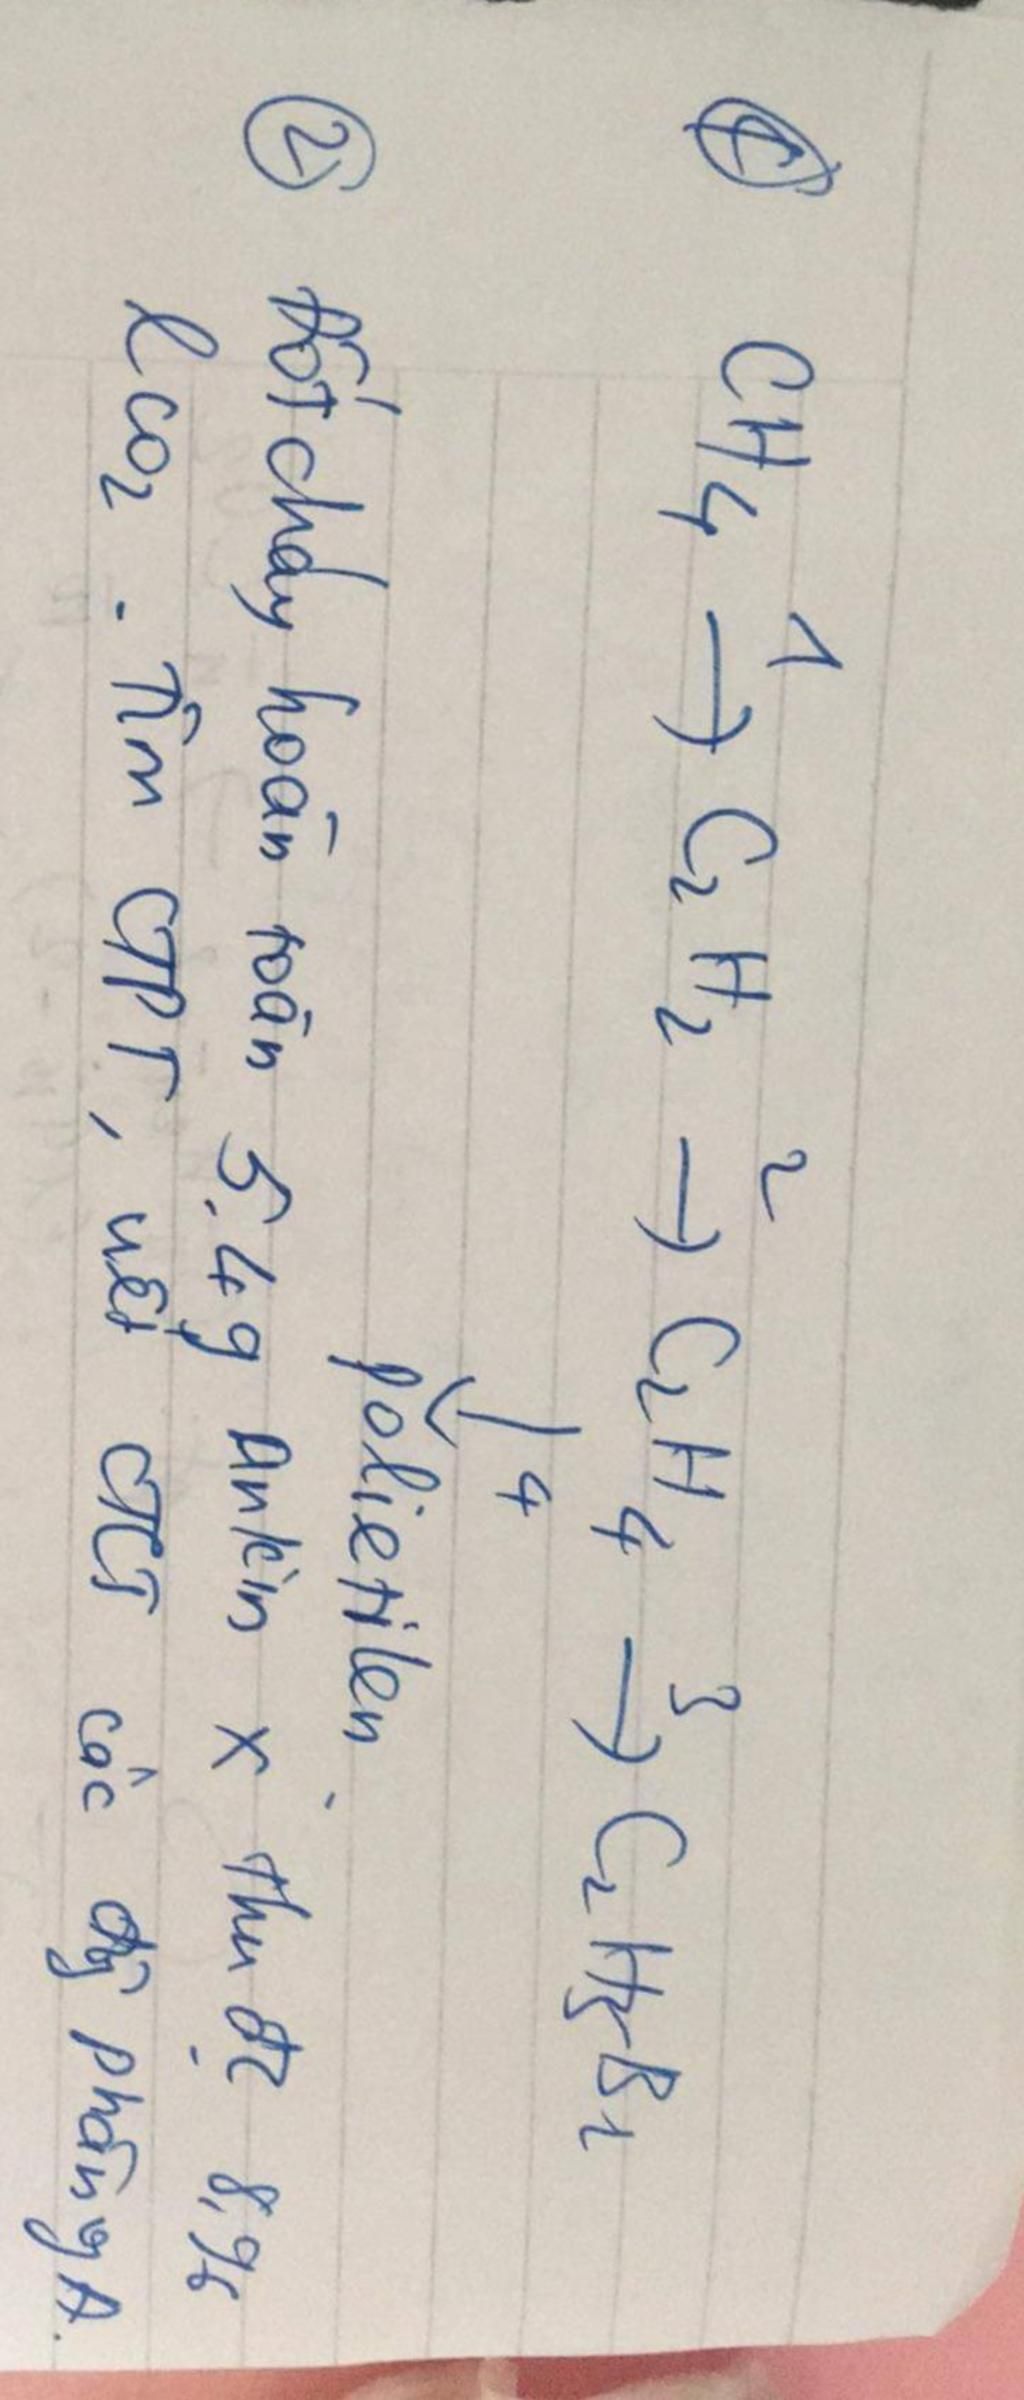 ① CH4 →1 C2H2 →2 C2H4 →3 C2H5Br
↓ 4
polietilen
② Đốt cháy hoàn toàn 5,4g Ankin X thu đc 8,96
l CO2 . Tìm CTPT, viết CTCT các đg phân A.